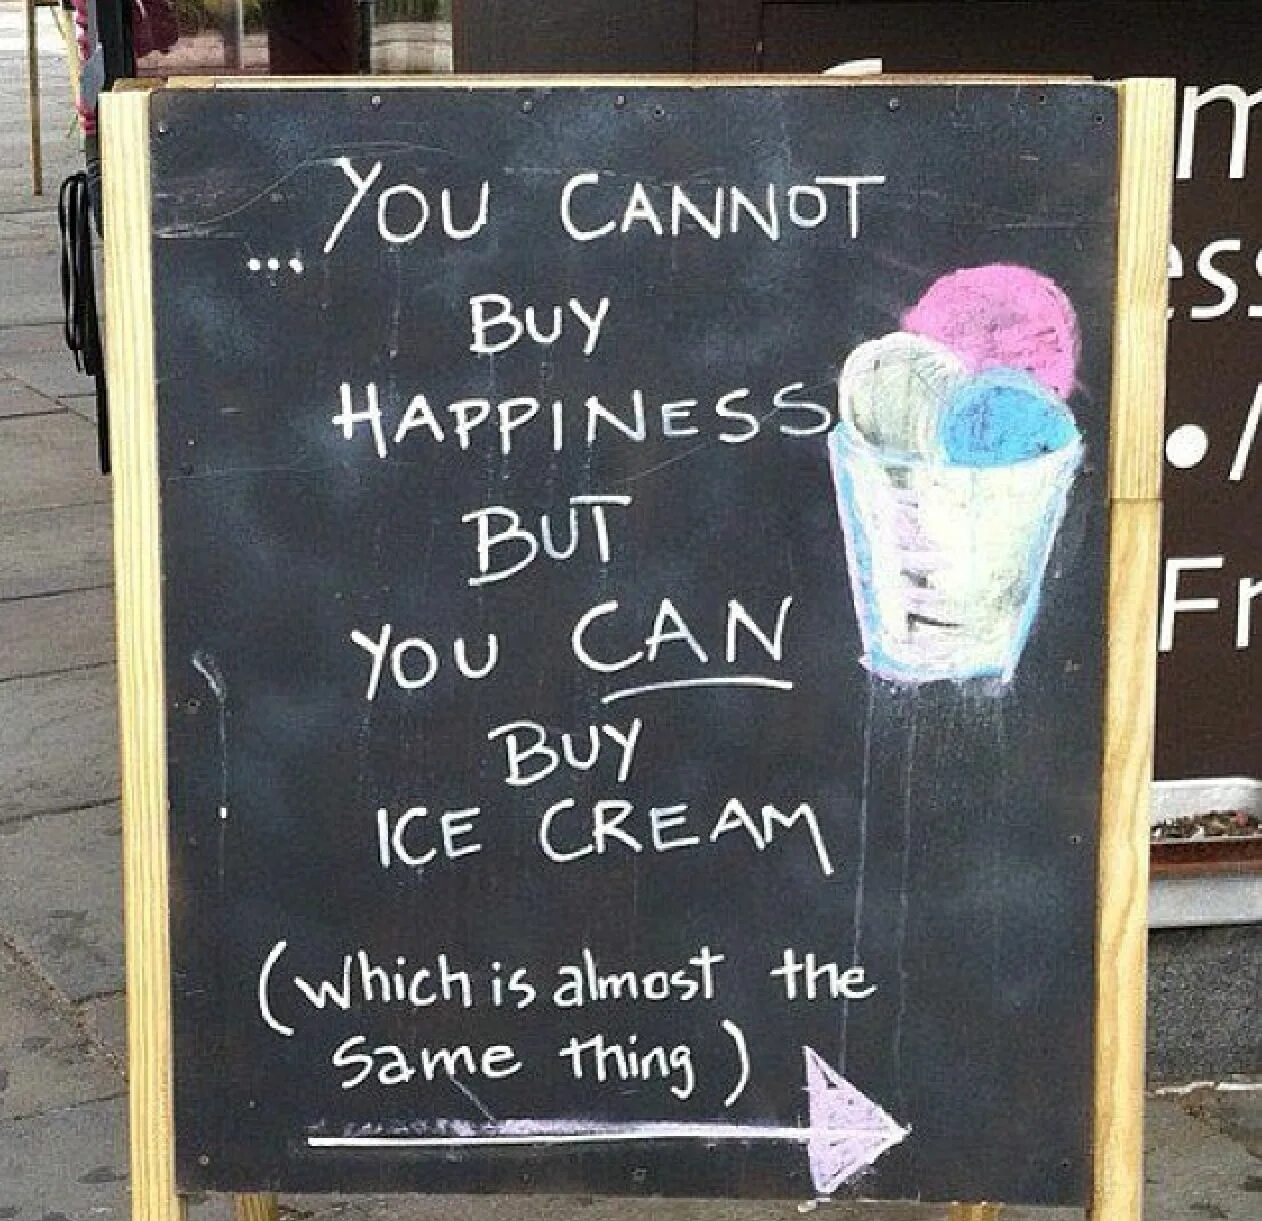 ...YOU CANNOT
BUY
HAPPINESS
BUT
YOU CAN
BUY
ICE CREAM
(which is almost the
same thing)